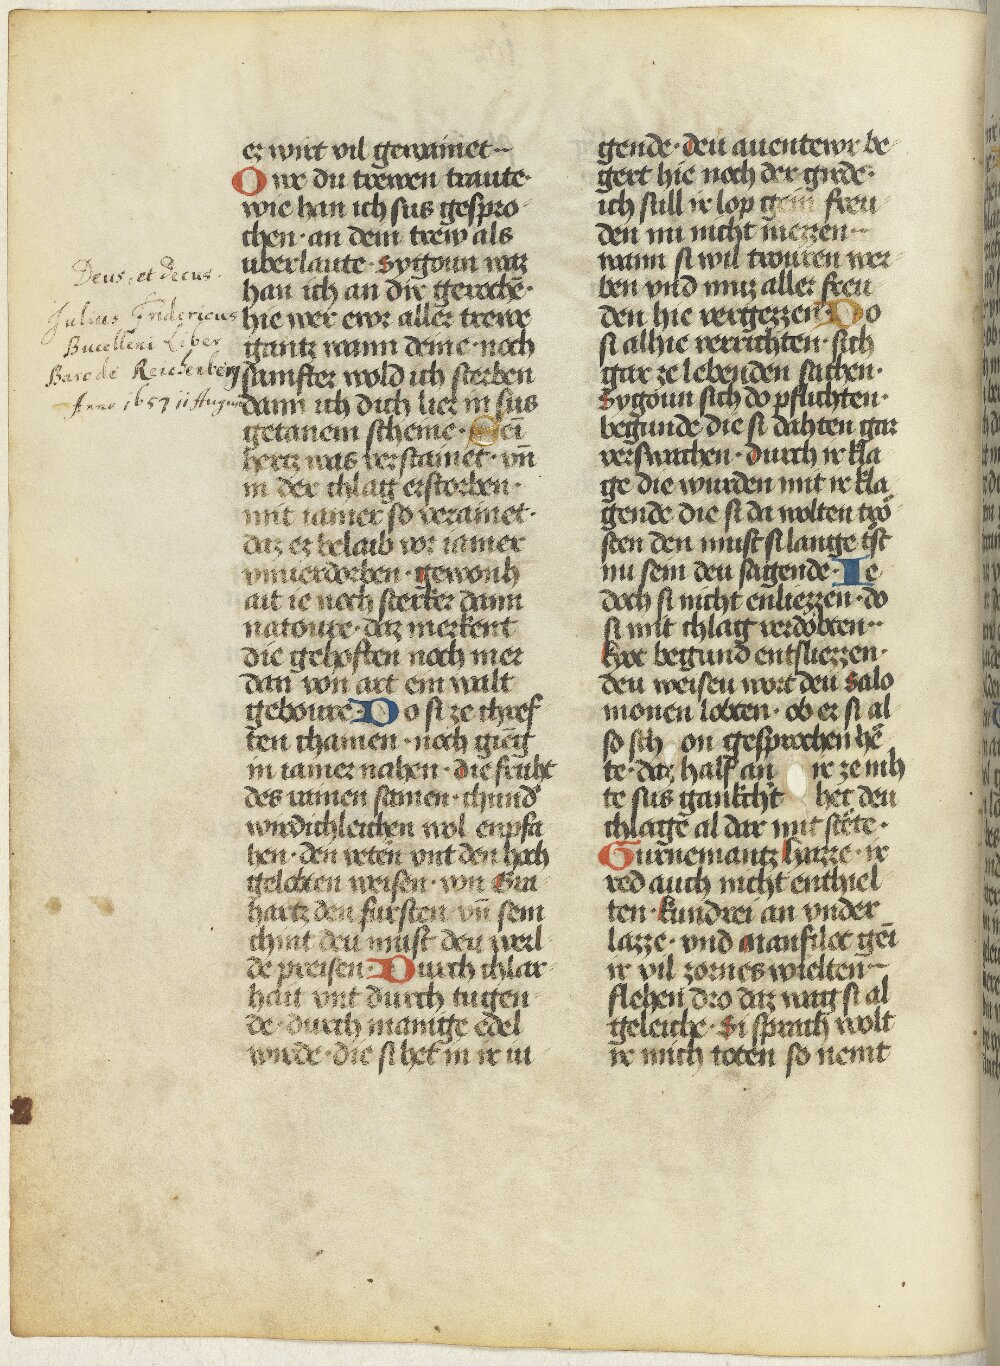 er wirt vil gewainet
Owe du trewen traute·
wie han ich sus gespro
chen· an dem trew als
uberlaute· Sygoun waz
han ich an dir gerochē·
hie wer ewr aller trewe
gantz wann deine· noch
sanfter wold ich sterben
dann ich dich lier in sus
getanem scheine· Sei
hertz was verstainet· vñ
in der chlag erstorben·
mit iamer so verainet·
daz ez belaib vor iamer
vnuerdorben· gewonh
ait ie noch sterker dann
natoure· daz merkent
die gehoften noch mer
dañ von art ein walt
geboure· Do si ze chref
ten chamen· noch gieng
in iamer nahen· die fruht
des rainen samen· chund
wirdichleichen wol enpfa
hen· den reten vnt den hoch
gelobten weisen· von Gra
hartz den fursten vñ sein
chint deu must deu werl
de preisen· Durch chlar
hait vnt durch tugen
de· durch manige edel
wirde· die si het in ir iu
gende· deu auentewr be
gert hie noch der girde·
ich sull ir lop gein freu
den nu nicht mezzen
wann si wil trouren wer
ben vnd muz aller freu
den hie vergezzen· Do
si alhie verrichten· sich
gar ze lebenden sachen·
Sygoun sich do pflichten·
begunde die si dahten gar
verswachen· durch ir kla
ge die wurden mit ir kla
gende die si da wolten trö
sten den must si lange tst
nu sein deu sagende· Ie
doch si nicht enliezzen· do
si mit chlag verdobten
kyot begund entsliezzen·
den weisen wort deu Salo
monen lobten· ob er si al
so sch on gesprochen hē
te· daz half an ir ze nih
te sus gankcht het deu
chlage al dar mit stete·
Gurnemantz Harze· ir
red auch nicht enthiel
ten· kundrei an vnder
lazze· vnd manfilot gēi
ir vil zornes wielten
flehen dro daz wag si al
geleiche· Si sprach wolt
ir mich toten so nemt
Deus, et Decus.
Julius Fridericus
Bucelleni Liber
Baro de Reichenberg
Anno 1657 11 Augus